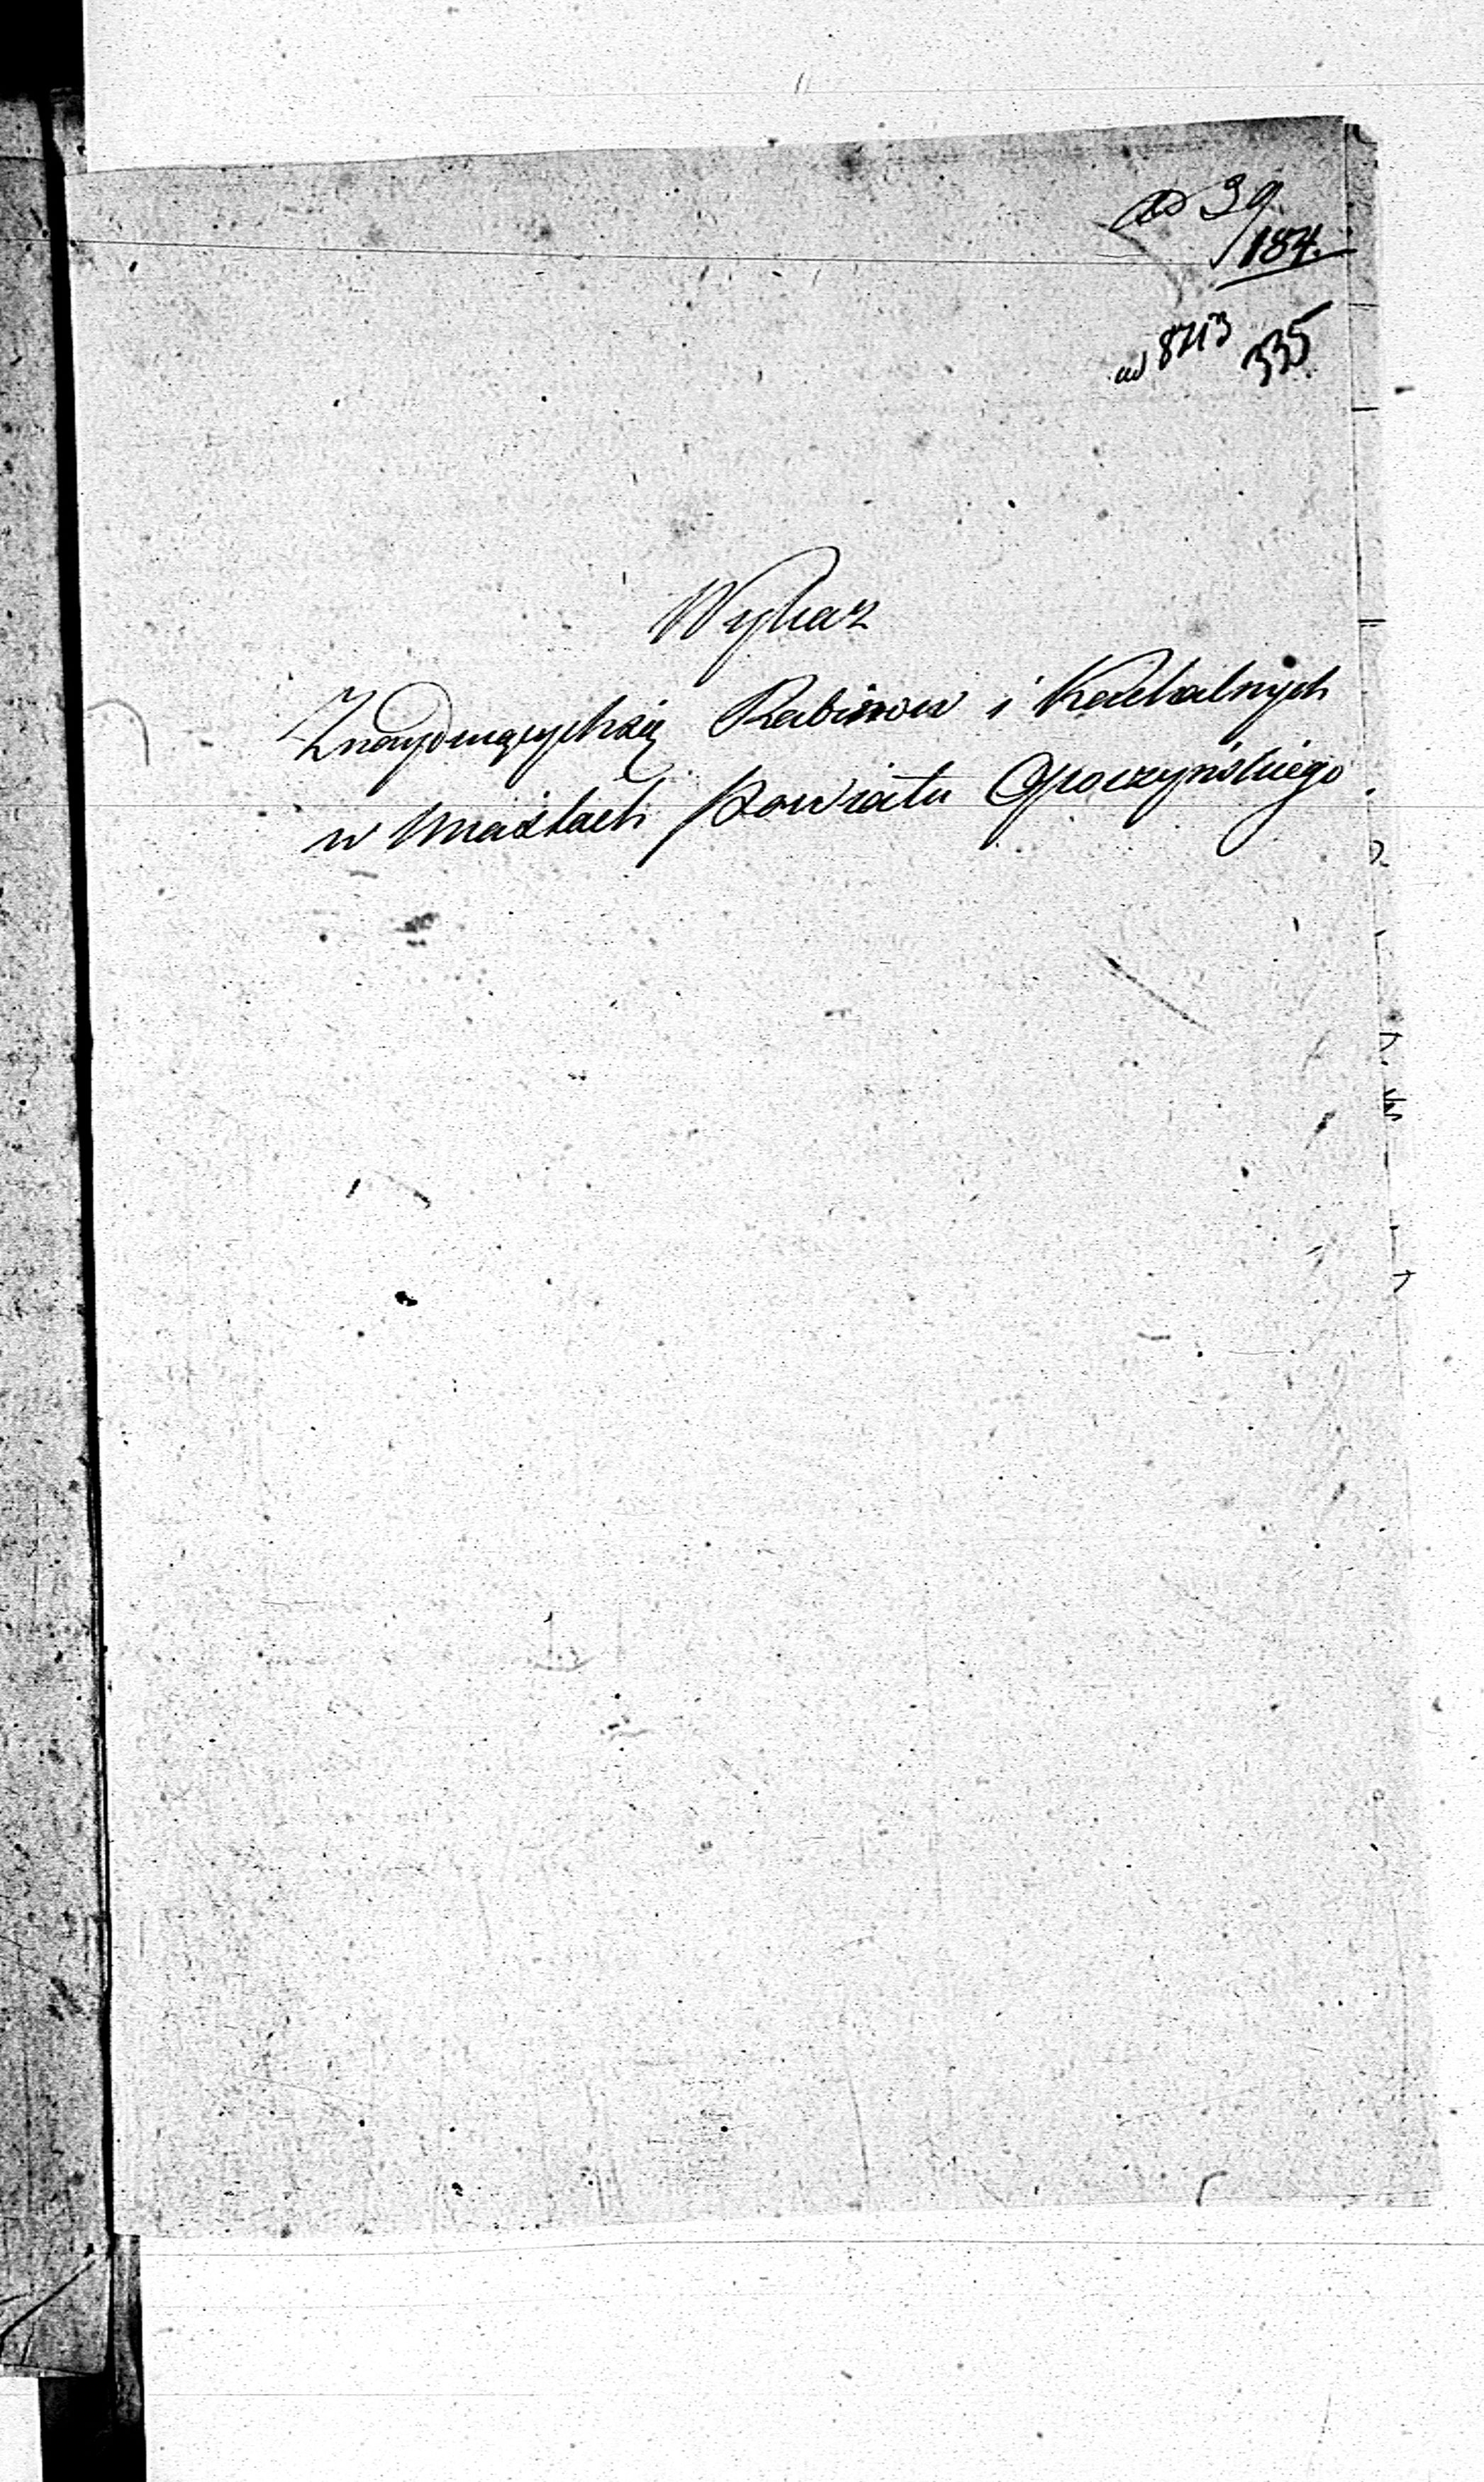 ad 39
/184.
ad 8713 335
Wykaz
Znayduiących się Rabinow i Kachalnych
w Miastach Powiatu Opoczyńskiego